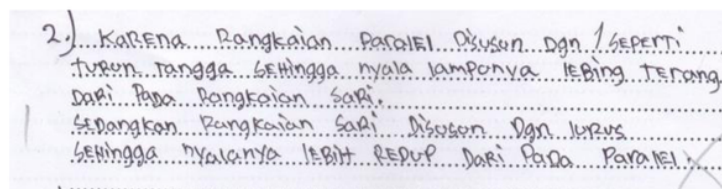 2.) KARENA Rangkaian Paralel Disusun Dgn / SEPERTI
turun Tangga SEHingga nyala lamponya lEBing TErang
DaRi PaDa Rangkaian SaRi.
SEDangkan Rangkaian SaRi Disusun Dgn lurus
SEHingga nyalanya lEBiH REDUP DaRi PaDa ParalEl.